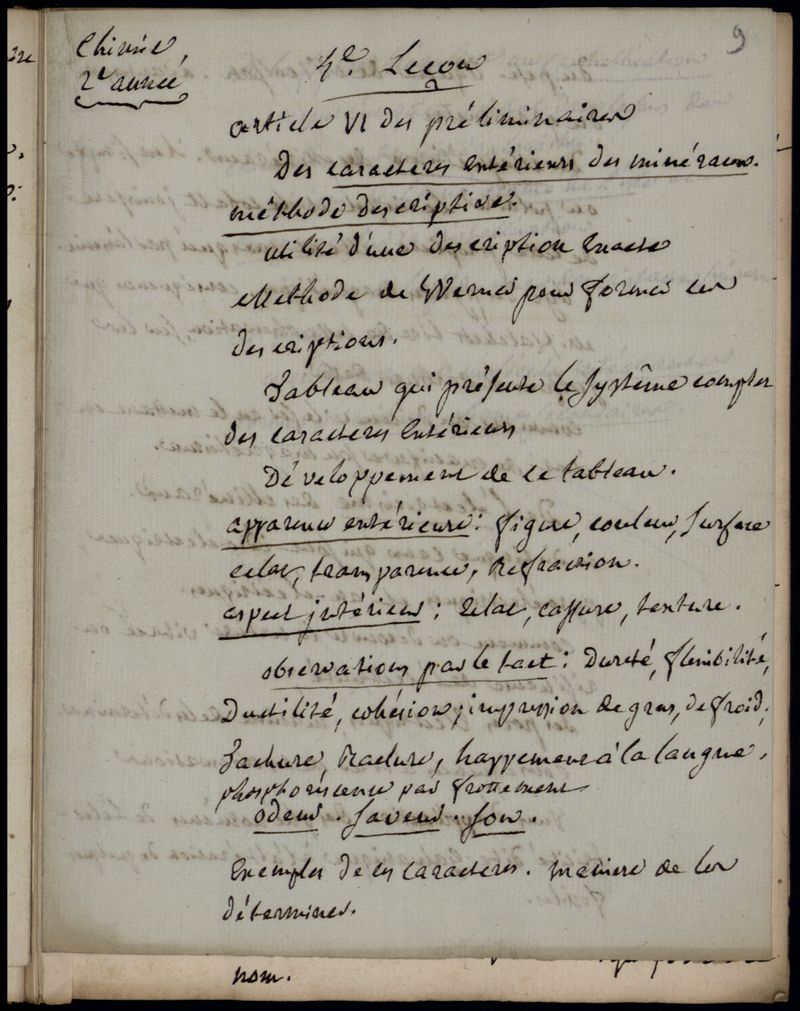 9
Chimie,
2e année
4e. Leçon
article VI des préliminaires
Des caracteres extérieurs des minéraux.
méthode descriptive.
utilité d'une description exacte
Methode de Werner pour former ces
descriptions.
Tableau qui présente le système complet
des caracteres extérieurs
Développement de ce tableau.
apparence extérieure : figure, couleur, surface
eclat, transparence, Refraction.
aspect intérieur : eclat, cassure, texture.
observations par le tact : Dureté, flexibilité,
Ductilité, cohésion, impression de gras, de froid,
Tachure, Raclure, happement à la langue,
phosphorescence par frottement
odeur. saveur. son.
Exemples de ces caracteres. maniere de les
déterminer.
nom.